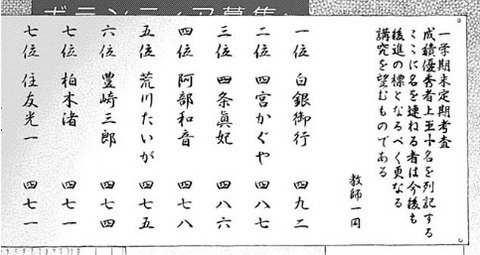 ボランティア募集
一学期末定期考査
成績優秀者上五十名を列記する
ここに名を連ねる者は今後も
後進の標となるべく更なる
講究を望むものである
教師一同
一位 白銀御行 四九二
二位 四宮かぐや 四八七
三位 四条眞妃 四八六
四位 阿部和音 四七八
五位 荒川たいが 四七五
六位 豊崎三郎 四七四
七位 柏木渚 四七一
七位 住友光一 四七一